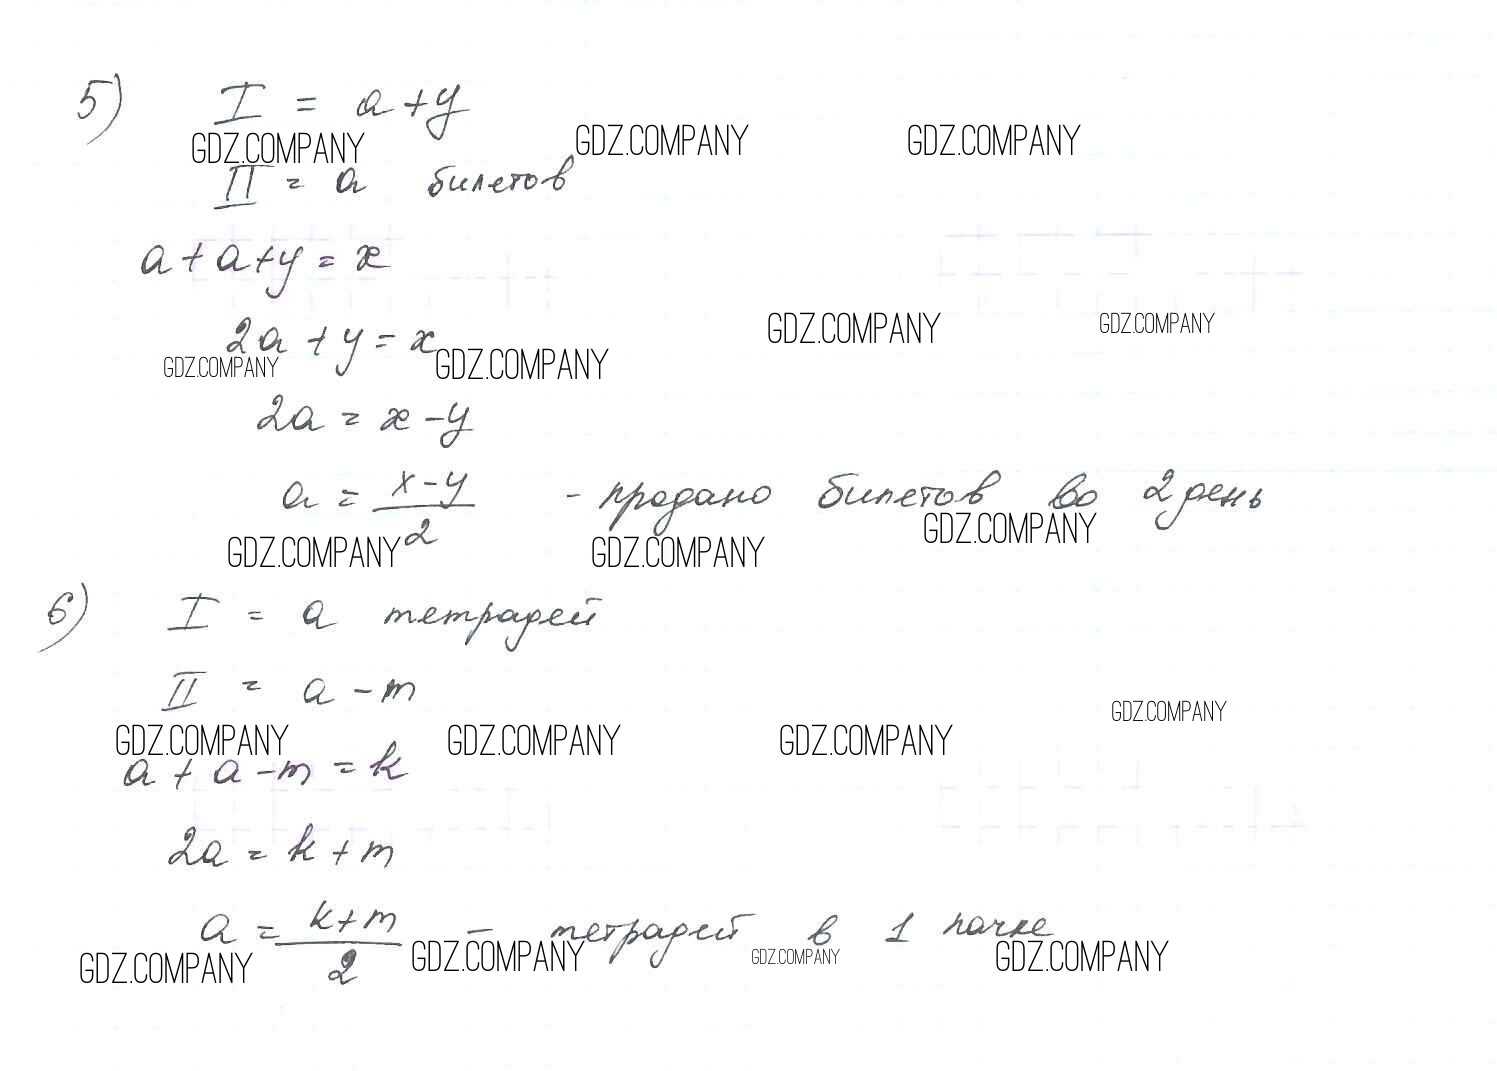 5) I = a + y
GDZ.COMPANY GDZ.COMPANY GDZ.COMPANY
II = a билетов
a + a + y = x
GDZ.COMPANY GDZ.COMPANY
2a + y = x
GDZ.COMPANY GDZ.COMPANY
2a = x - y
a = \frac{x-y}{2} - продано билетов во 2 день
GDZ.COMPANY GDZ.COMPANY GDZ.COMPANY
6) I = a тетрадей
II = a - m
GDZ.COMPANY
GDZ.COMPANY GDZ.COMPANY GDZ.COMPANY
a + a - m = k
2a = k + m
a = \frac{k+m}{2} - тетрадей в 1 пачке
GDZ.COMPANY GDZ.COMPANY GDZ.COMPANY GDZ.COMPANY